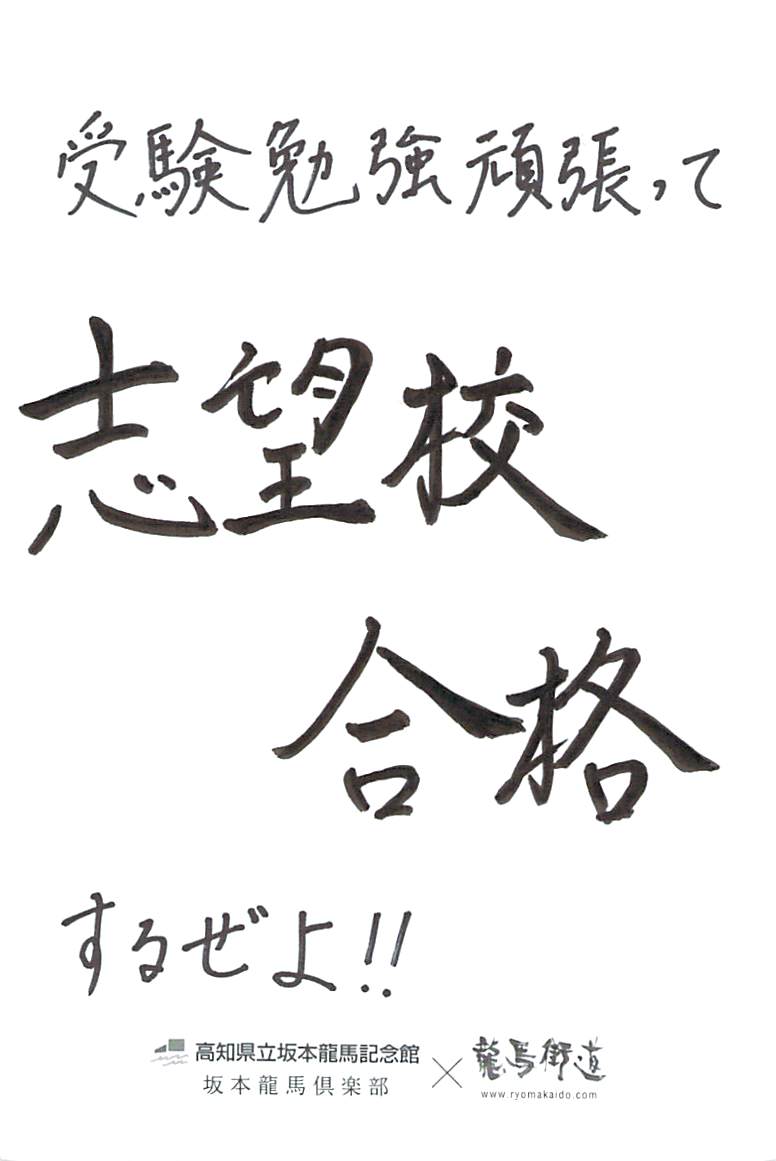 受験勉強頑張って
志望校
合格
するぜよ!!
高知県立坂本龍馬記念館
坂本龍馬倶楽部
×
龍馬街道
www.ryomakaido.com